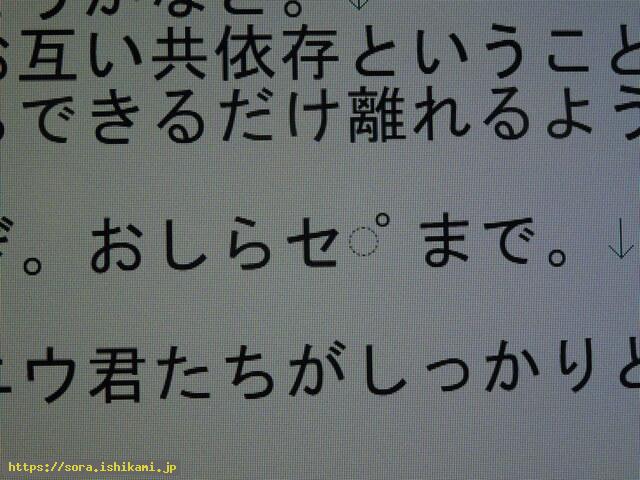 うかなど。↓
お互い共依存ということ
できるだけ離れるよう
。おしらセ゚まで。↓
ウ君たちがしっかりと
https://sora.ishikami.jp